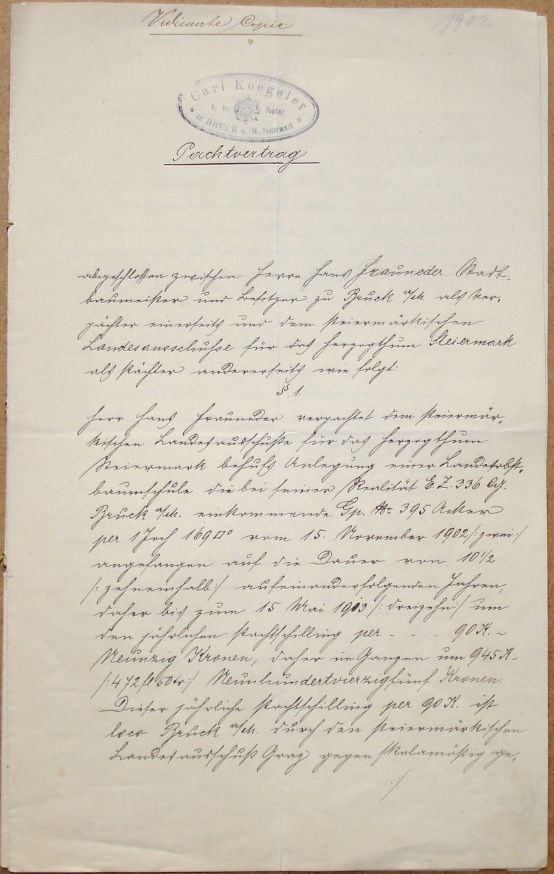 Vidimirte Copie
1902
Carl Koegeler
k. k. Notar
in BRUCK a./M. Steiermark
Pachtvertrag
abgeschlossen zwischen Herrn Hans Frauneder Stadt-
baumeister und Besitzer zu Bruck a/M. als Ver-
pächter einerseits und dem steiermärkischen
Landesausschuße für das Herzogthum Steiermark
als Pächter andererseits wie folgt:
§ 1.
Herr Hans Frauneder verpachtet dem steiermär-
kischen Landesausschuße für das Herzogthum
Steiermark behufs Anlegung einer Landesobst-
baumschule die bei seiner Realität E.Z. 336 C.G.
Bruck a/M. einkommende Gp. Nr. 395 Acker
per 1 Joch 169 □° vom 15. November 1902 /:zwei:/
angefangen auf die Dauer von 10 1/2
/:zehneinhalb:/ aufeinanderfolgenden Jahren,
daher bis zum 15. Mai 1913 /:dreizehn:/ um
den jährlichen Pachtschilling per - . . 90 K. -
Neunzig Kronen, daher in Ganzen um 945 K -
/:472 fl 50 kr:/ Neunhundertvierzigfünf Kronen.
Dieser jährliche Pachtschilling per 90 K. ist
loco Bruck a/M. durch den steiermärkischen
Landesausschuß Graz gegen skalamäßig ge-
./